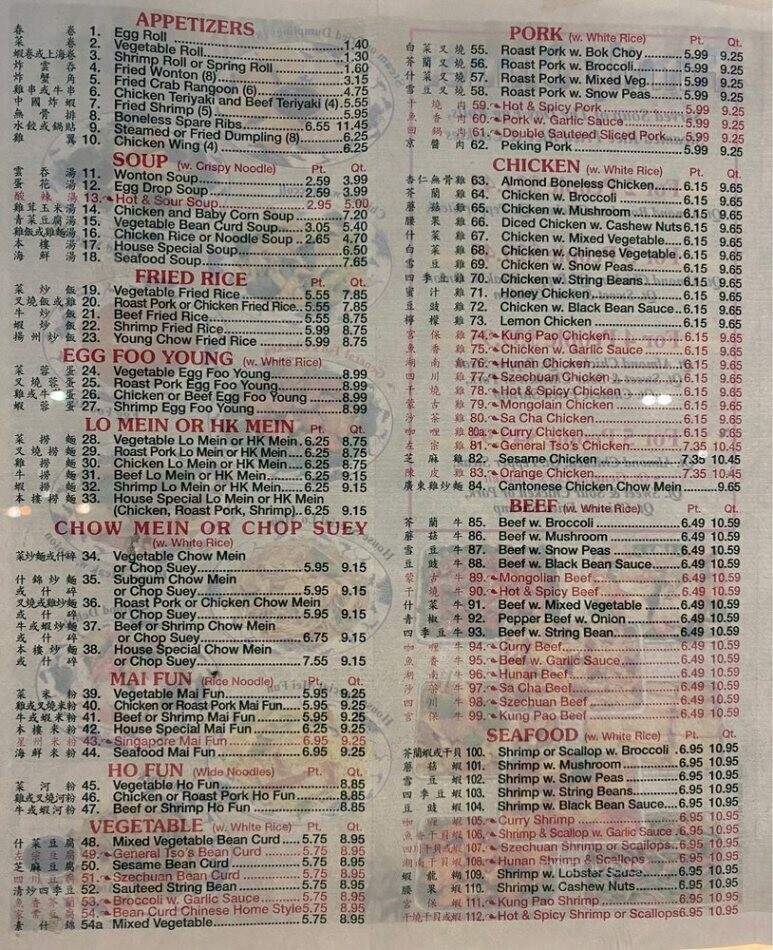 APPETIZERS
春卷 1. Egg Roll
菜卷 2. Vegetable Roll 1.40
蝦卷或上海卷 3. Shrimp Roll or Spring Roll 1.30
炸雲吞 4. Fried Wonton (8) 1.60
炸蟹角 5. Fried Crab Rangoon (6) 3.15
雞串或牛串 6. Chicken Teriyaki and Beef Teriyaki (4) 4.75
中國炸蝦 7. Fried Shrimp (5) 5.55
無骨排 8. Boneless Spare Ribs 5.95
水餃或鍋貼 9. Steamed or Fried Dumpling (8) 6.55 11.45
雞翼 10. Chicken Wing (4) 6.25
6.25
SOUP (w. Crispy Noodle) Pt. Qt.
雲吞湯 11. Wonton Soup 2.59 3.99
蛋花湯 12. Egg Drop Soup 2.59 3.99
酸辣湯 13. Hot & Sour Soup 2.95 5.00
雞茸玉米湯 14. Chicken and Baby Corn Soup 7.20
青菜豆腐湯 15. Vegetable Bean Curd Soup 3.05 5.40
雞飯或雞麵湯 16. Chicken Rice or Noodle Soup 2.65 4.70
本樓湯 17. House Special Soup 6.50
海鮮湯 18. Seafood Soup 7.65
FRIED RICE Pt. Qt.
菜炒飯 19. Vegetable Fried Rice 5.55 7.85
叉燒飯或雞 20. Roast Pork or Chicken Fried Rice 5.55 7.85
牛炒飯 21. Beef Fried Rice 5.55 8.75
蝦炒飯 22. Shrimp Fried Rice 5.99 8.75
揚州炒飯 23. Young Chow Fried Rice 5.99 8.75
EGG FOO YOUNG (w. White Rice)
菜蓉蛋 24. Vegetable Egg Foo Young 8.99
叉燒蓉蛋 25. Roast Pork Egg Foo Young 8.99
雞或牛蛋 26. Chicken or Beef Egg Foo Young 8.99
蝦蓉蛋 27. Shrimp Egg Foo Young 8.99
LO MEIN OR HK MEIN Pt. Qt.
菜撈麵 28. Vegetable Lo Mein or HK Mein 6.25 8.75
叉燒撈麵 29. Roast Pork Lo Mein or HK Mein 6.25 8.75
雞撈麵 30. Chicken Lo Mein or HK Mein 6.25 8.75
牛撈麵 31. Beef Lo Mein or HK Mein 6.25 9.15
蝦撈麵 32. Shrimp Lo Mein or HK Mein 6.25 9.15
本樓撈麵 33. House Special Lo Mein or HK Mein
(Chicken, Roast Pork, Shrimp) 6.25 9.15
CHOW MEIN OR CHOP SUEY
(w. White Rice) Pt. Qt.
菜炒麵或什碎 34. Vegetable Chow Mein
or Chop Suey 5.95 9.15
什錦炒麵 35. Subgum Chow Mein
或什碎 or Chop Suey 5.95 9.15
叉燒或雞炒麵 36. Roast Pork or Chicken Chow Mein
或什碎 or Chop Suey 5.95 9.15
牛或蝦炒麵 37. Beef or Shrimp Chow Mein
或什碎 or Chop Suey 6.75 9.15
本樓炒麵 38. House Special Chow Mein
或什碎 or Chop Suey 7.55 9.15
MAI FUN (Rice Noodle) Pt. Qt.
菜米粉 39. Vegetable Mai Fun 5.95 9.25
雞或叉燒米粉 40. Chicken or Roast Pork Mai Fun 5.95 9.25
牛或蝦米粉 41. Beef or Shrimp Mai Fun 5.95 9.25
本樓米粉 42. House Special Mai Fun 6.25 9.25
星州米粉 43. Singapore Mai Fun 6.95 9.25
海鮮米粉 44. Seafood Mai Fun 6.95 9.25
HO FUN (Wide Noodles) Pt. Qt.
菜河粉 45. Vegetable Ho Fun 8.85
雞或叉燒河粉 46. Chicken or Roast Pork Ho Fun 8.85
牛或蝦河粉 47. Beef or Shrimp Ho Fun 8.85
VEGETABLE (w. White Rice) Pt. Qt.
什菜豆腐 48. Mixed Vegetable Bean Curd 5.75 8.95
左宗豆腐 49. General Tso's Bean Curd 5.75 8.95
芝麻豆腐 50. Sesame Bean Curd 5.75 8.95
四川豆腐 51. Szechuan Bean Curd 5.75 8.95
清炒四季豆 52. Sauteed String Bean 5.75 8.95
魚香芥蘭 53. Broccoli w. Garlic Sauce 5.75 8.95
家常豆腐 54. Bean Curd Chinese Home Style 5.75 8.95
素什錦 54a Mixed Vegetable 5.75 8.95
PORK (w. White Rice) Pt. Qt.
白菜叉燒 55. Roast Pork w. Bok Choy 5.99 9.25
芥蘭叉燒 56. Roast Pork w. Broccoli 5.99 9.25
什菜叉燒 57. Roast Pork w. Mixed Veg. 5.99 9.25
雪豆叉燒 58. Roast Pork w. Snow Peas 5.99 9.25
干燒肉 59. Hot & Spicy Pork 5.99 9.25
魚香肉 60. Pork w. Garlic Sauce 5.99 9.25
回鍋肉 61. Double Sauteed Sliced Pork 5.99 9.25
京醬肉 62. Peking Pork 5.99 9.25
CHICKEN (w. White Rice) Pt. Qt.
杏仁無骨雞 63. Almond Boneless Chicken 6.15 9.65
芥蘭雞 64. Chicken w. Broccoli 6.15 9.65
蘑菇雞 65. Chicken w. Mushroom 6.15 9.65
腰果雞 66. Diced Chicken w. Cashew Nuts 6.15 9.65
什菜雞 67. Chicken w. Mixed Vegetable 6.15 9.65
白菜雞 68. Chicken w. Chinese Vegetable 6.15 9.65
雪豆雞 69. Chicken w. Snow Peas 6.15 9.65
四季豆雞 70. Chicken w. String Beans 6.15 9.65
蜜汁雞 71. Honey Chicken 6.15 9.65
豆豉雞 72. Chicken w. Black Bean Sauce 6.15 9.65
檸檬雞 73. Lemon Chicken 6.15 9.65
宮保雞 74. Kung Pao Chicken 6.15 9.65
魚香雞 75. Chicken w. Garlic Sauce 6.15 9.65
湖南雞 76. Hunan Chicken 6.15 9.65
四川雞 77. Szechuan Chicken 6.15 9.65
干燒雞 78. Hot & Spicy Chicken 6.15 9.65
蒙古雞 79. Mongolain Chicken 6.15 9.65
沙茶雞 80. Sa Cha Chicken 6.15 9.65
咖喱雞 80a. Curry Chicken 6.15 9.65
左宗雞 81. General Tso's Chicken 7.35 10.45
芝麻雞 82. Sesame Chicken 7.35 10.45
陳皮雞 83. Orange Chicken 7.35 10.45
廣東雞炒麵 84. Cantonese Chicken Chow Mein 9.65
BEEF (w. White Rice) Pt. Qt.
芥蘭牛 85. Beef w. Broccoli 6.49 10.59
蘑菇牛 86. Beef w. Mushroom 6.49 10.59
雪豆牛 87. Beef w. Snow Peas 6.49 10.59
豆豉牛 88. Beef w. Black Bean Sauce 6.49 10.59
蒙古牛 89. Mongolian Beef 6.49 10.59
干燒牛 90. Hot & Spicy Beef 6.49 10.59
什菜牛 91. Beef w. Mixed Vegetable 6.49 10.59
青椒牛 92. Pepper Beef w. Onion 6.49 10.59
四季豆牛 93. Beef w. String Bean 6.49 10.59
咖喱牛 94. Curry Beef 6.49 10.59
魚香牛 95. Beef w. Garlic Sauce 6.49 10.59
湖南牛 96. Hunan Beef 6.49 10.59
沙茶牛 97. Sa Cha Beef 6.49 10.59
四川牛 98. Szechuan Beef 6.49 10.59
宮保牛 99. Kung Pao Beef 6.49 10.59
SEAFOOD (w. White Rice) Pt. Qt.
芥蘭蝦或干貝 100. Shrimp or Scallop w. Broccoli 6.95 10.95
蘑菇蝦 101. Shrimp w. Mushroom 6.95 10.95
雪豆蝦 102. Shrimp w. Snow Peas 6.95 10.95
四季豆蝦 103. Shrimp w. String Beans 6.95 10.95
豆豉蝦 104. Shrimp w. Black Bean Sauce 6.95 10.95
咖喱蝦 105. Curry Shrimp 6.95 10.95
魚香干貝蝦 106. Shrimp & Scallop w. Garlic Sauce 6.95 10.95
四川干貝蝦 107. Szechuan Shrimp or Scallops 6.95 10.95
湖南干貝蝦 108. Hunan Shrimp & Scallops 6.95 10.95
蝦龍糊 109. Shrimp w. Lobster Sauce 6.95 10.95
腰果蝦 110. Shrimp w. Cashew Nuts 6.95 10.95
宮保蝦 111. Kung Pao Shrimp 6.95 10.95
干燒干貝或蝦 112. Hot & Spicy Shrimp or Scallops 6.95 10.95